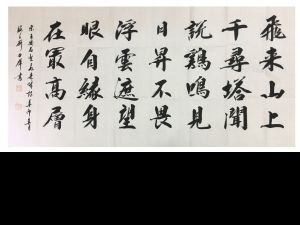 飛来山上
千尋塔聞
説鷄鳴見
日昇不畏
浮雲遮望
眼自緣身
在最高層
宋王安石登飛来峰